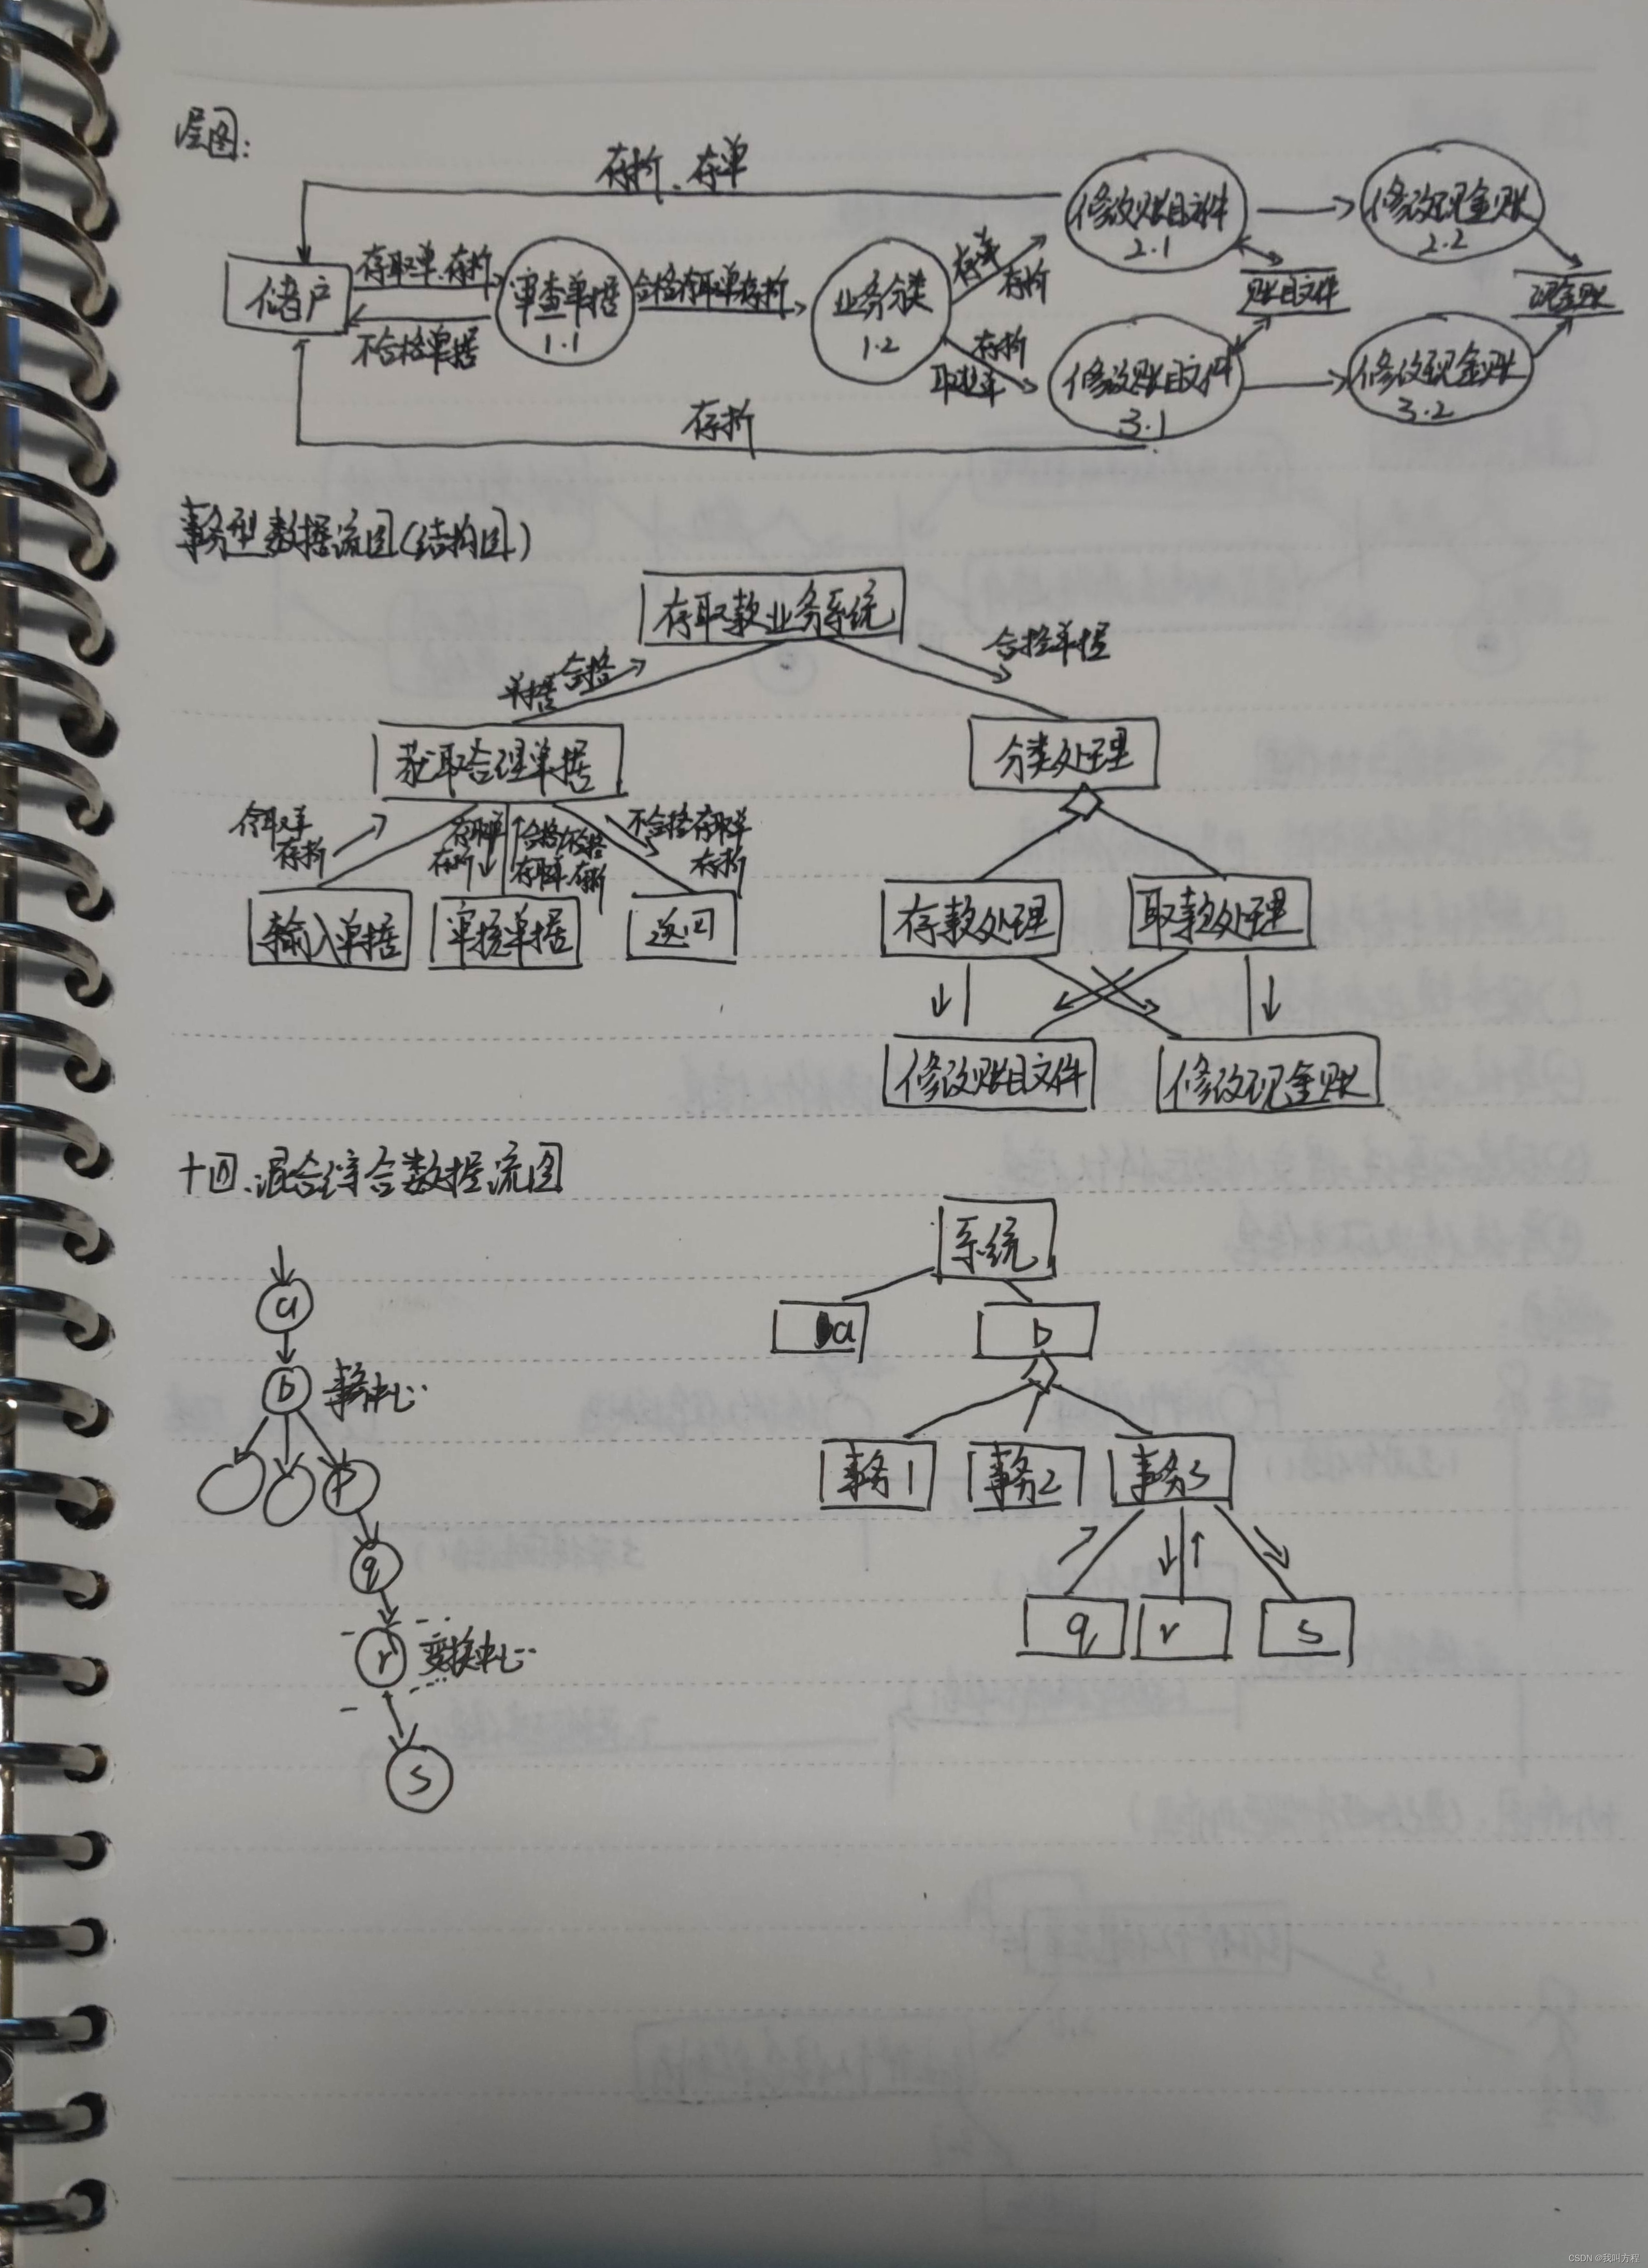 层图:
存折、存单
储户
存取单.存折
不合格单据
审查单据
1.1
合格存取单存折
业务分类
1.2
存单
存折
存折
取款单
修改账目文件
2.1
修改现金账
2.2
账目文件
现金账
修改账目文件
3.1
修改现金账
3.2
存折
事务型数据流图(结构图)
存取款业务系统
单据 合格
合格单据
获取合理单据
分类处理
存折
存取单
存折
合格/不合格
存取单.存折
不合格存取单
存折
输入单据
审核单据
返回
存款处理
取款处理
修改账目文件
修改现金账
十四.混合综合数据流图
a
b 事务中心
p
q
r 变换中心
s
系统
a
b
事务1
事务2
事务3
q
r
s
CSDN @我叫方程